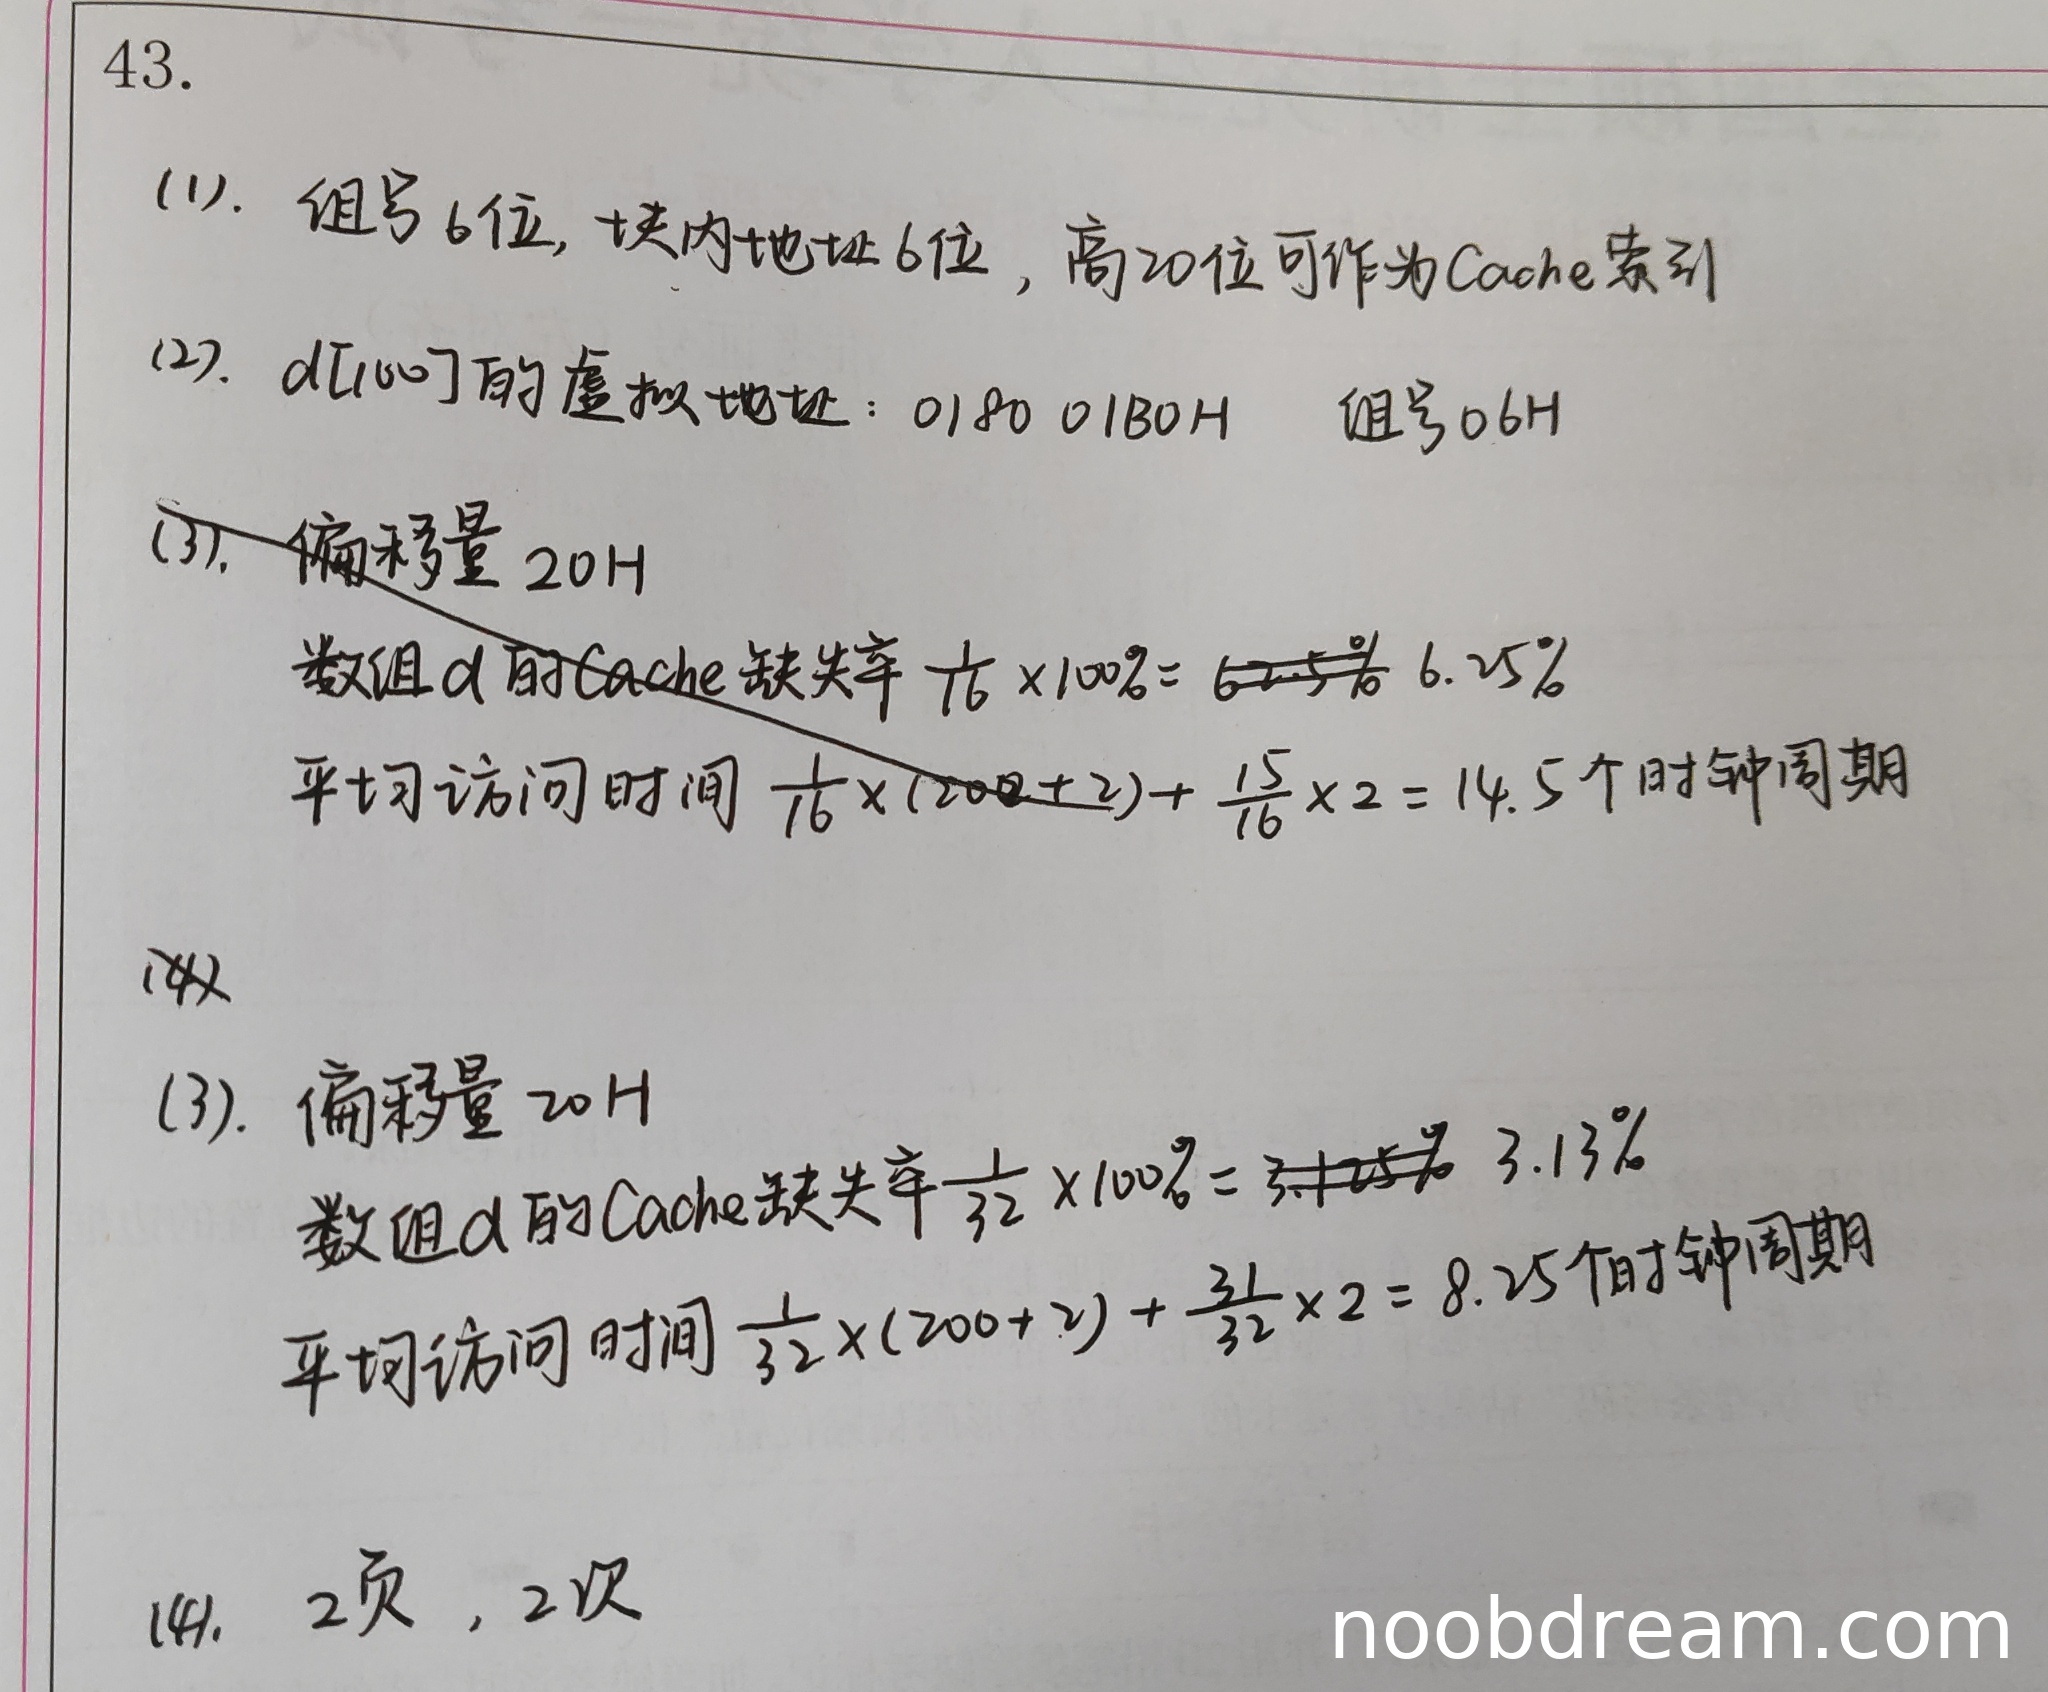 43.
(1). 组号6位, 块内地址6位, 高20位可作为Cache索引
(2). d[100]的虚拟地址: 0180 01B0H 组号06H
(3). 偏移量 20H
数组d的Cache缺失率 1/16 ×100%= 62.5% 6.25%
平均访问时间 1/16 ×(200+2)+ 15/16 ×2 = 14.5个时钟周期
(4)
(3). 偏移量 20H
数组d的Cache缺失率 1/32 ×100%= 3.125% 3.13%
平均访问时间 1/32 ×(200+2) + 31/32 ×2 = 8.25个时钟周期
(4). 2页, 2次
noobdream.com